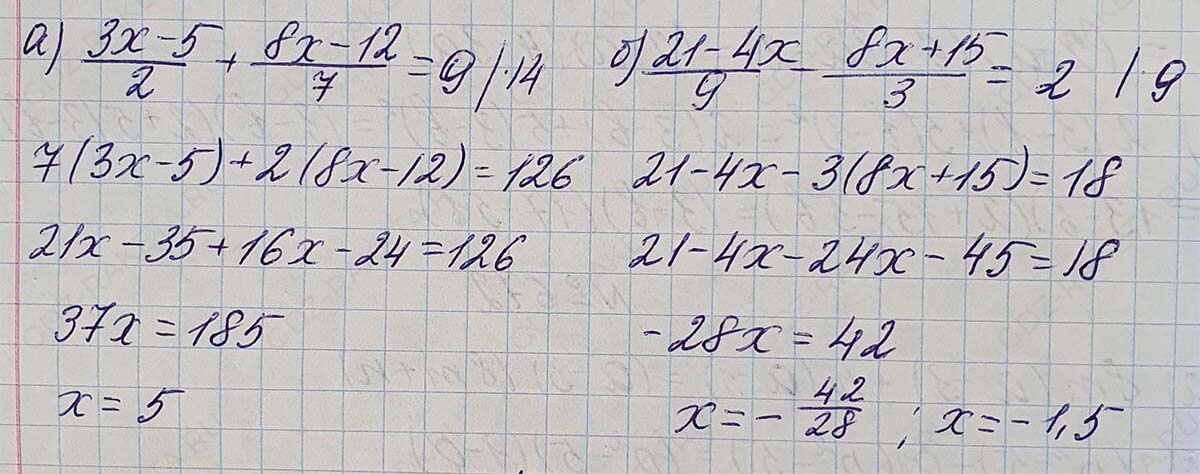 а) (3x-5)/2 + (8x-12)/7 = 9 |·14
7(3x-5)+2(8x-12)=126
21x-35+16x-24=126
37x=185
x=5
б) (21-4x)/9 - (8x+15)/3 = 2 | 9
21-4x-3(8x+15)=18
21-4x-24x-45=18
-28x=42
x=-42/28 ; x=-1,5